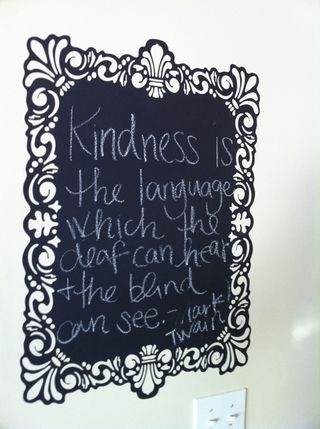 Kindness is
the language
which the
deaf can hear
+ the blind
can see. - Mark
Twain